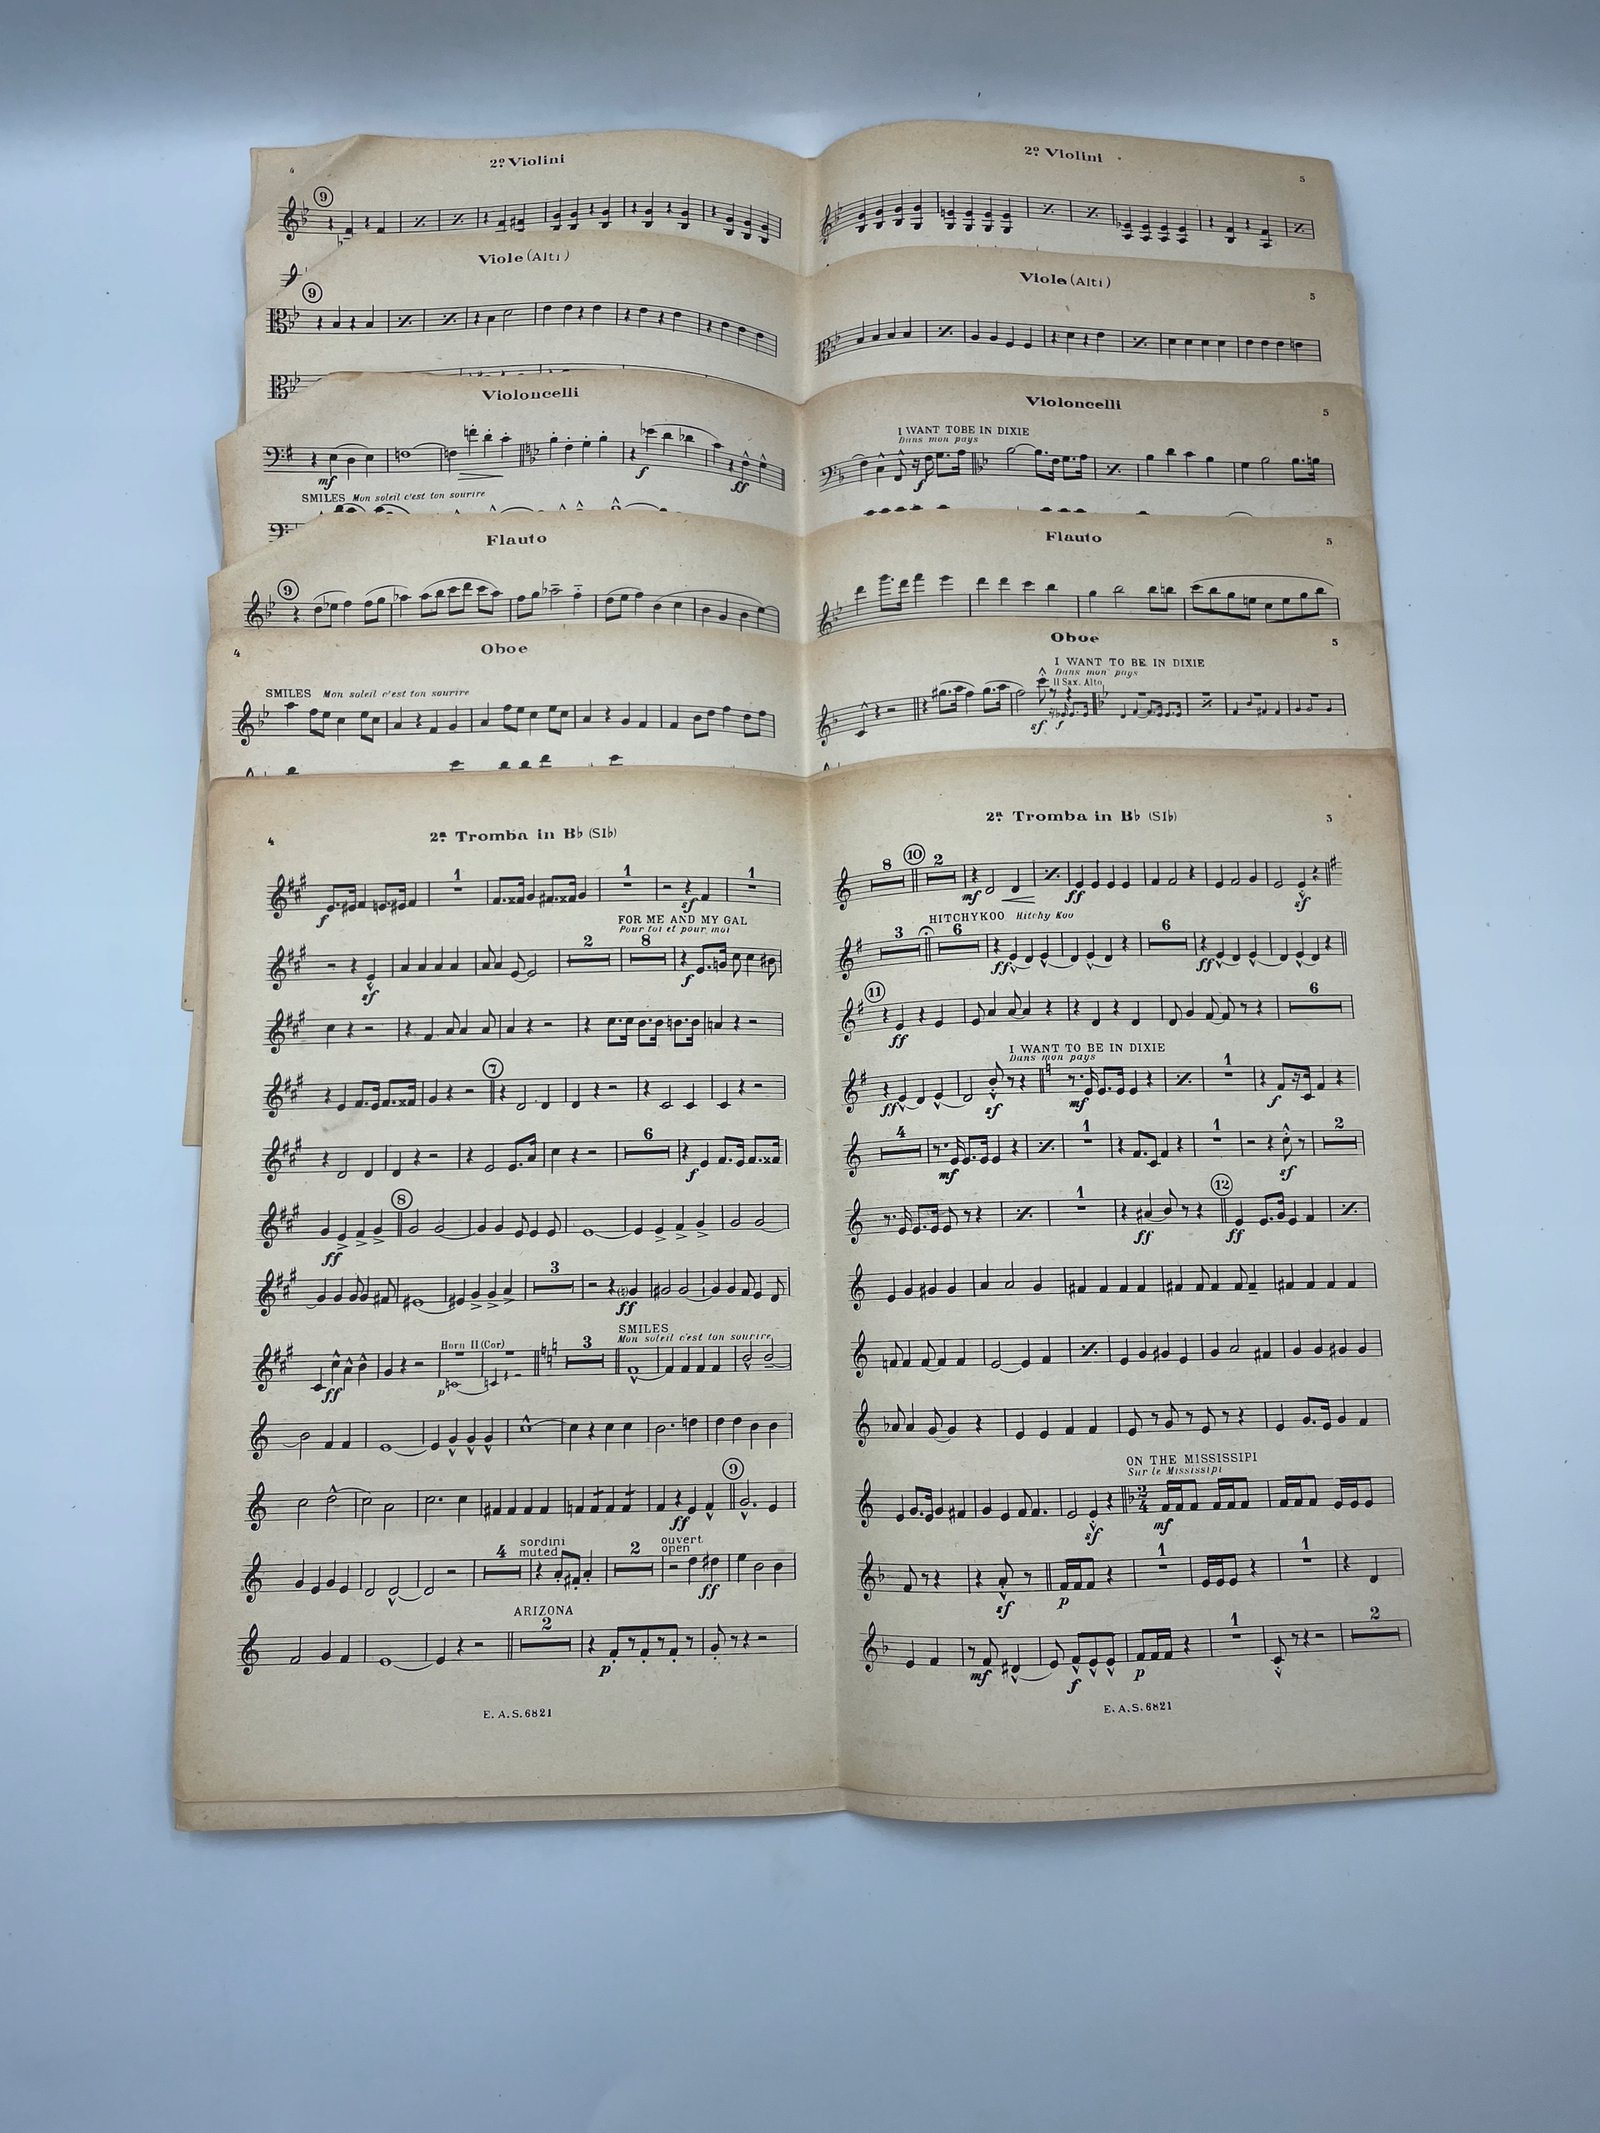 4
2º Violini
9
2º Violini
5
Viole (Alti)
9
Viole (Alti)
5
Violoncelli
mf
f
ff
SMILES Mon soleil c'est ton sourire
Violoncelli
5
I WANT TOBE IN DIXIE
Dans mon pays
f
Flauto
9
Flauto
5
4
Oboe
SMILES Mon soleil c'est ton sourire
Oboe
5
I WANT TO BE IN DIXIE
Dans mon pays
II Sax. Alto
sf f
4
2ª Tromba in B♭ (SI♭)
1 1 1
f sf
FOR ME AND MY GAL
Pour toi et pour moi
2 8
sf f
7
6
f
8
ff
3
ff
SMILES
Mon soleil c'est ton sourire
Horn II (Cor)
3
ff p
9
ff
sordini
muted
ouvert
open
4 2
ff
ARIZONA
2
p
E. A. S. 6821
2ª Tromba in B♭ (SI♭)
5
8 10 2
mf ff sf
HITCHYKOO Hitchy Koo
3 6 6
ff ff
11
6
ff
I WANT TO BE IN DIXIE
Dans mon pays
1
ff sf mf f
4 1 1 2
mf sf
1 12
ff ff
ON THE MISSISSIPI
Sur le Mississipi
2
4
sf mf
1 1
sf p
1 2
mf f p
E. A. S. 6821